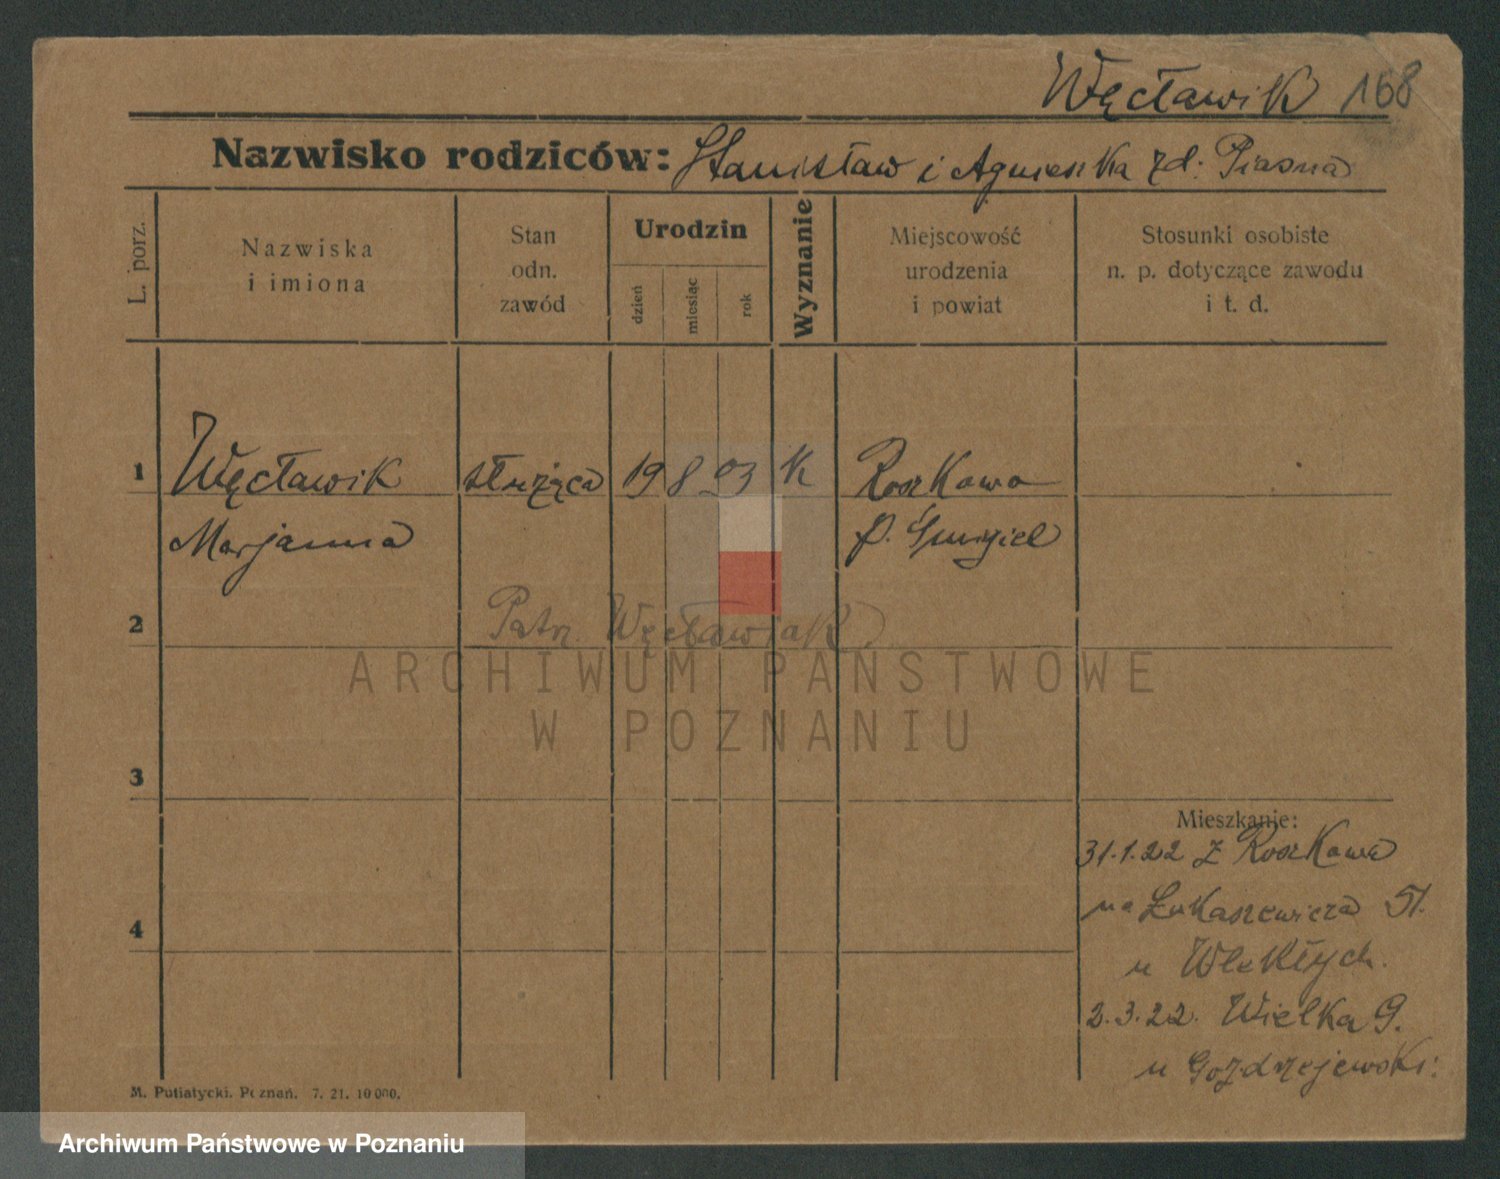 Węcławik 168
Nazwisko rodziców: Stanisław i Agnieszka zd. Piasna
L. porz.
Nazwiska
i imiona
Stan
odn.
zawód
Urodzin
dzień
miesiąc
rok
Wyznanie
Miejscowość
urodzenia
i powiat
Stosunki osobiste
n. p. dotyczące zawodu
i t. d.
1 Węcławik służąca 19 8 03 K Roszkowo
Marjanna p. Śmigiel
2 Patrz. Węcławiak
ARCHIWUM PAŃSTWOWE
W POZNANIU
3
Mieszkanie:
31.1.22 z Roszkowa
4 na Łukaszewicza 51.
u
2.3.22. Wielka 9.
u Gozdziejewski:
M. Putiatycki. Poznań. 7. 21. 10 000.
Archiwum Państwowe w Poznaniu